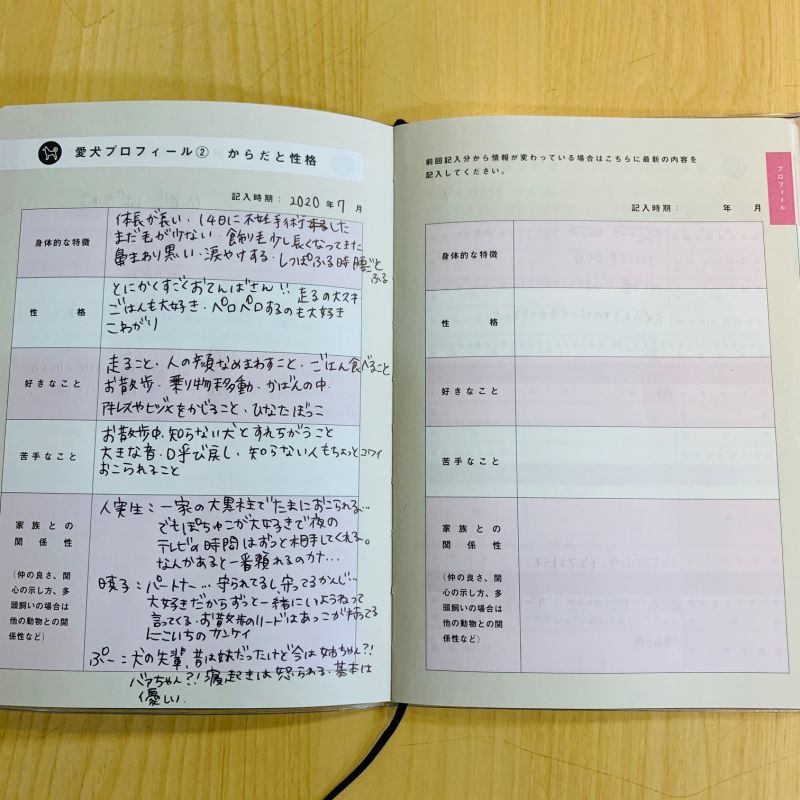 愛犬プロフィール② からだと性格
記入時期： 2020 年 7 月
身体的な特徴
体長が長い・14日に不妊手術した
まだ毛が少ない・飾り毛少し長くなってきた
鼻まわり黒い・涙やけする・しっぽふる時腰ごと
ふる
性 格
とにかくすごくおてんばさん!! 走るの大スキ
ごはんも大好き・ペロペロするのも大好き
こわがり
好きなこと
走ること・人の顔なめまわすこと・ごはん食べること
お散歩・乗り物移動・かばんの中
アキレスやヒヅメをかじること・ひなたぼっこ
苦手なこと
お散歩中、知らない犬とすれちがうこと
大きな音・呼び戻し・知らない人もちょっとコワイ
おこられること
家族との
関係性
(仲の良さ、関
心の示し方、多
頭飼いの場合は
他の動物との関
係性など)
人実生：一家の大黒柱でたまにおこられる…
でもぽちゅこが大好きで夜の
テレビの時間はずっと相手してくれる。
なんかあると一番頼れるのカナ…
暎子：パートナー…守られてるし、守ってるかんじ…
大好きだからずっと一緒にいようねって
言ってくる・お散歩のリードはあっこが持ってる
にこいちのカンケイ
ぷー：犬の先輩、昔は妹だったけど今は姉ちゃん?!
バァちゃん?! 寝起きは怒られる・基本は
優しい.
前回記入分から情報が変わっている場合はこちらに最新の内容を
記入してください。
プロフィール
記入時期： 年 月
身体的な特徴
性 格
好きなこと
苦手なこと
家族との
関係性
(仲の良さ、関
心の示し方、多
頭飼いの場合は
他の動物との関
係性など)